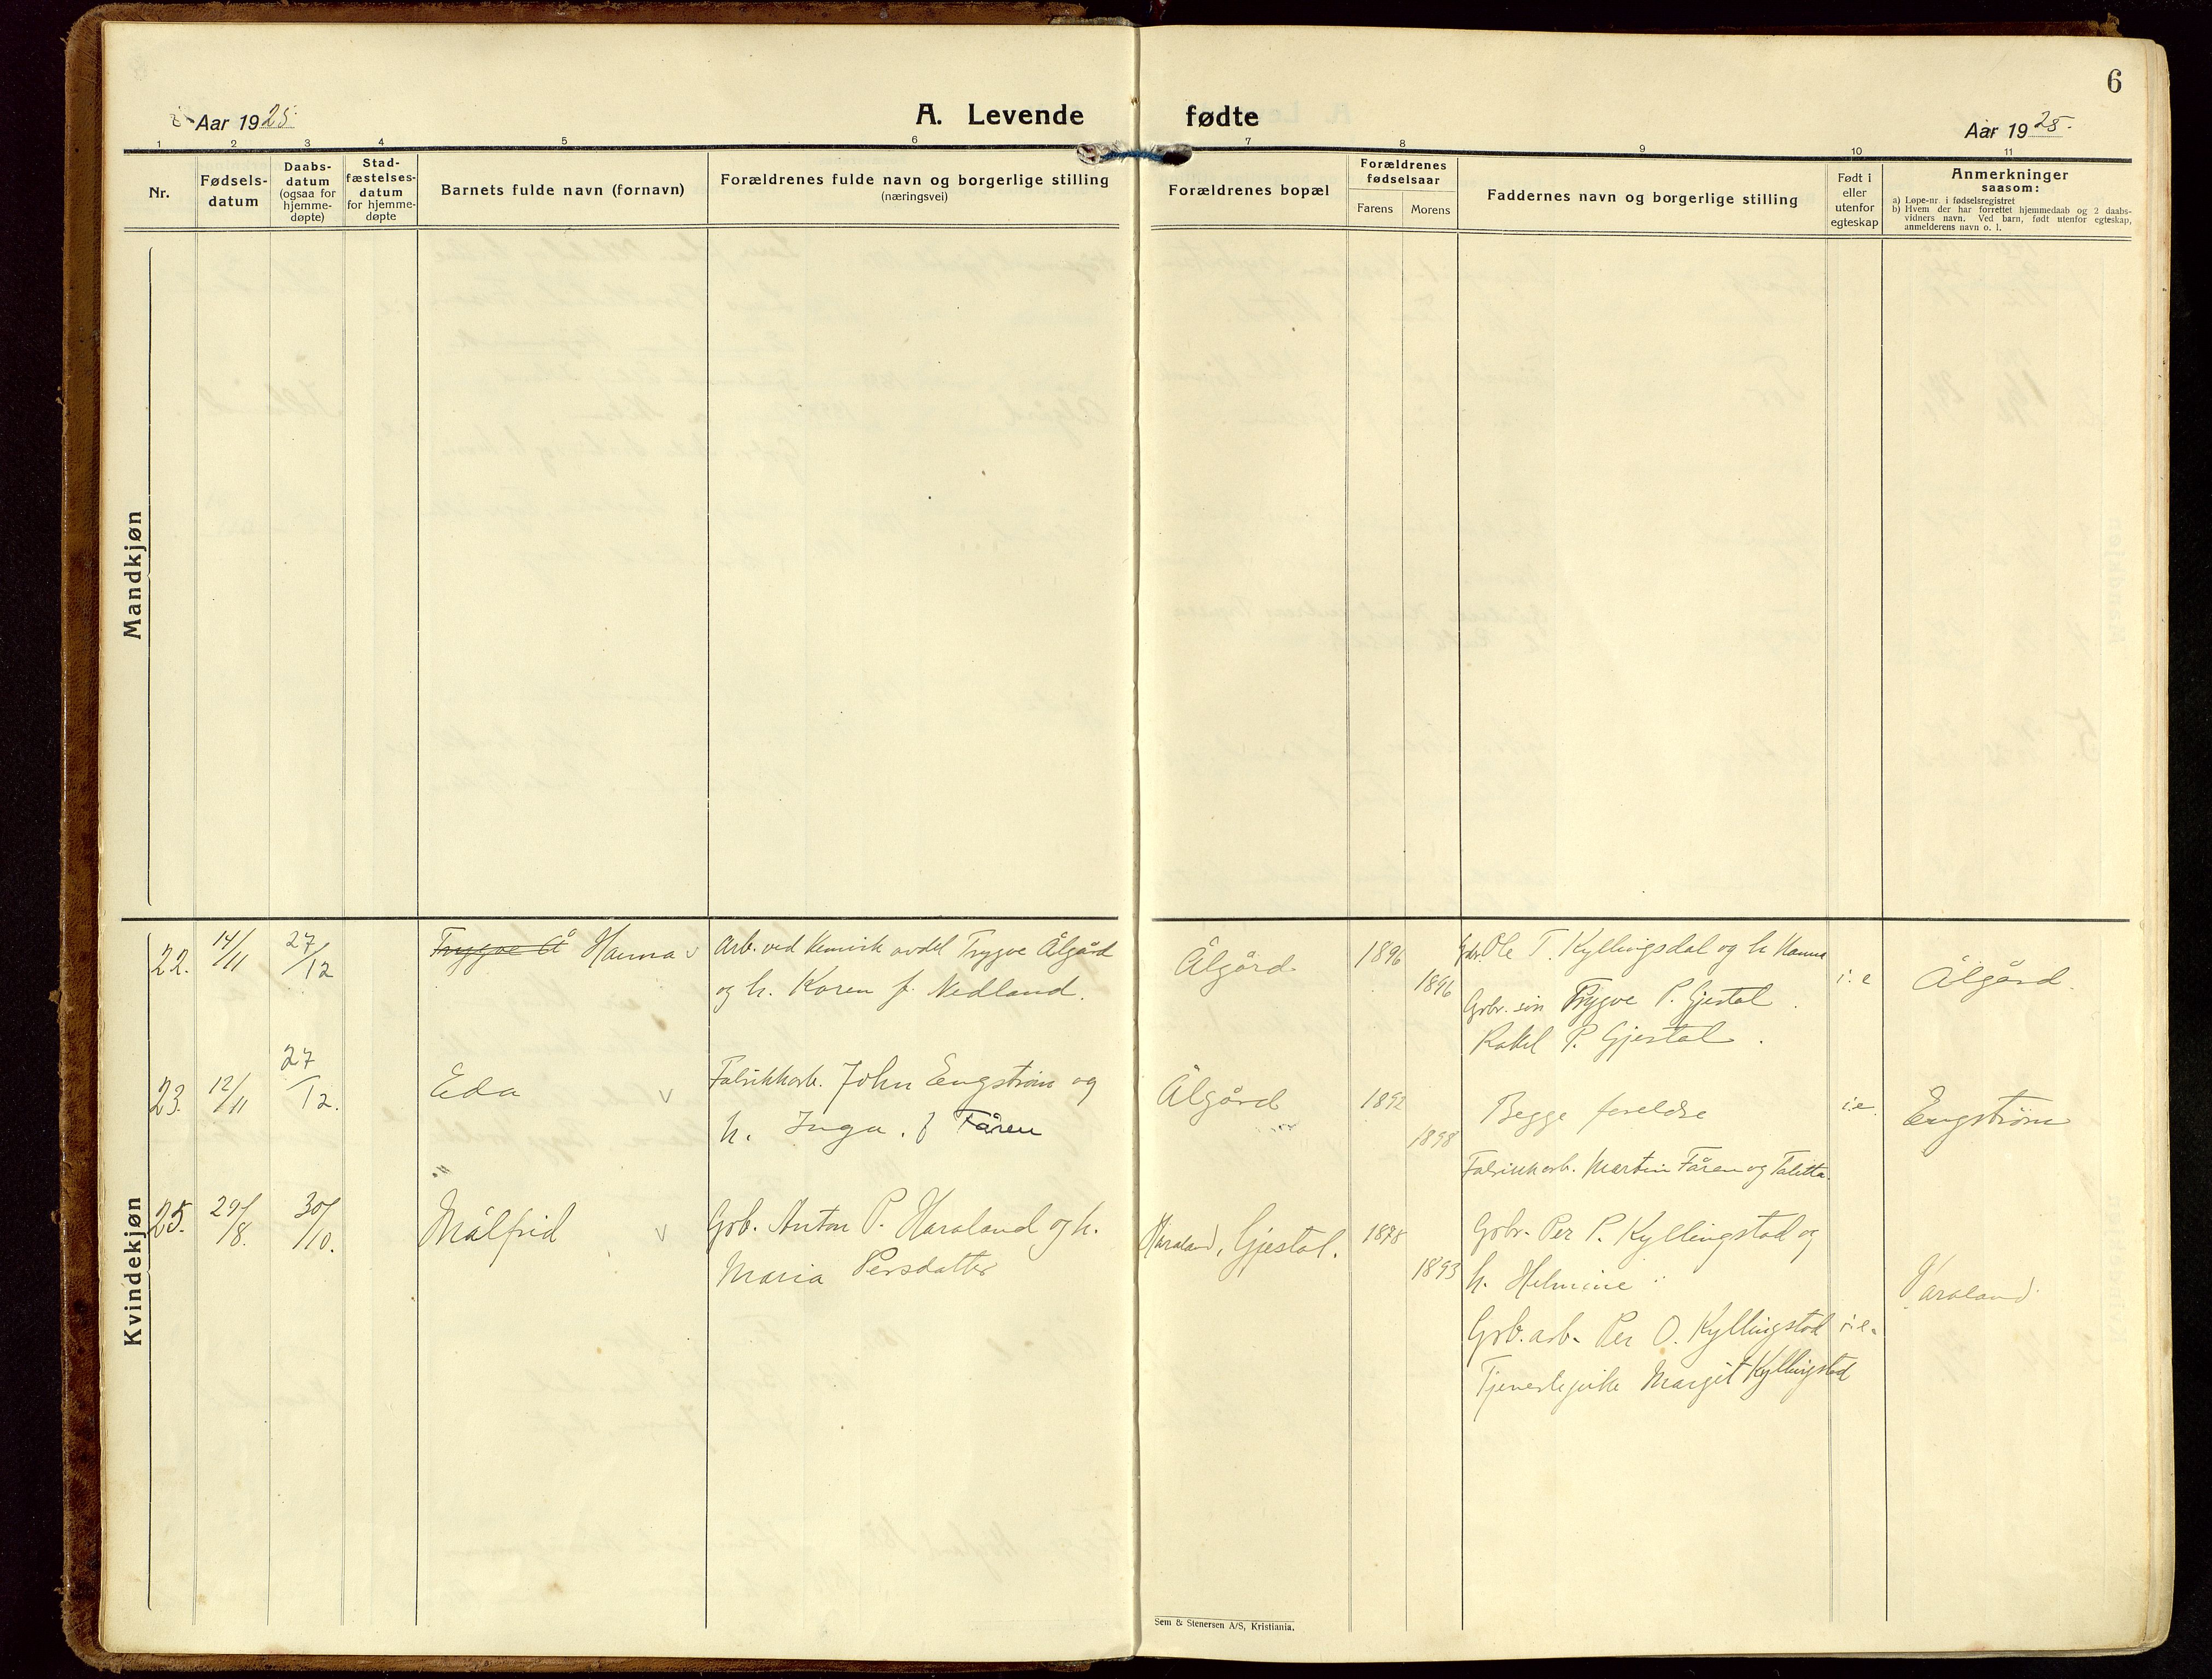 6
Aar 1925.
A. Levende fødte
Aar 1925.
1 2 3 4 5 6 7 8 9 10 11
Nr.
Fødsels-
datum
Daabs-
datum
(ogsaa for
hjemme-
døpte)
Stad-
fæstelses-
datum
for hjemme-
døpte
Barnets fulde navn (fornavn)
Forældrenes fulde navn og borgerlige stilling
(næringsvei)
Forældrenes bopæl
Forældrenes
fødselsaar
Farens Morens
Faddernes navn og borgerlige stilling
Født i
eller
utenfor
egteskap
Anmerkninger
saasom:
a) Løpe-nr. i fødselsregistret
b) Hvem der har forrettet hjemmedaab og 2 daabs-
vidners navn. Ved barn, født utenfor egteskap,
anmelderens navn o. l.
Mandkjøn
Kvindekjøn
22. 14/11 27/12 Trygve Å Hanna v
Arb. ved Kemisk avdel Trygve Ålgård
og h. Karen f. Nedland.
Ålgård 1896 1896
Gbr. Ole T. Kyllingsdal og h Hanna
Gbr. søn Trygve P. Gjestal.
Rakel P. Gjestal.
i. e Ålgård.
23. 12/11 27/12. Eda v
Fabrikkarb. John Engstrøm og
h. Inga. f Fåren
Ålgård 1892 1898
Begge foreldre
Fabrikkarb. Martin Fåren og Talitta.
i.e. Engstrøm
25. 29/8. 30/10. Målfrid v
Grb. Anton P. Haraland og h.
Maria Persdatter
Haraland, Gjestal. 1878 1893
Gbr. Per P. Kyllingstad og
h. Helmine
Grb. arb. Per O. Kyllingstad
Tjenestejente Margit Kyllingstad
i. e. Varaland
Sem & Stenersen A/S, Kristiania.